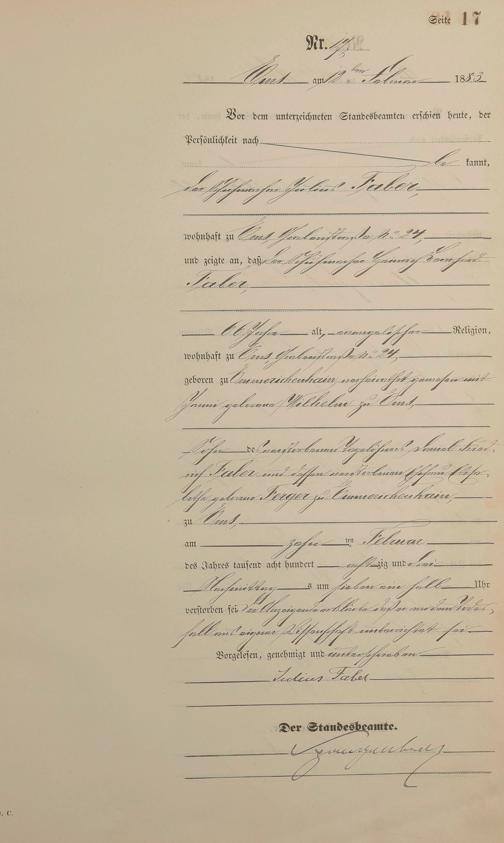 Seite 17
Nr. 17.
Ems am 12ten Februar 1883
Vor dem unterzeichneten Standesbeamten erschien heute, der
Persönlichkeit nach
be kannt,
der Schuhmacher Julius Faber,
wohnhaft zu Ems No 24,
und zeigte an, daß der Schuhmacher Heinrich
Faber,
66 Jahre alt, evangelischer Religion,
wohnhaft zu Ems No 24,
geboren zu Emmerichenhain, verheirathet gewesen mit
geborene Wilhelm zu Ems,
Sohn des verstorbenen Tagelöhners Fried-
rich Faber und dessen verstorbenen Ehefrau
geborene Ferger zu Emmerichenhain,
zu Ems,
am zehn ten Februar
des Jahres tausend acht hundert achtzig und drei
Nachmittag s um sieben ein halb Uhr
verstorben sei der Anzeigende erklärte daß er von dem Todes-
fall aus eigener Wissenschaft unterrichtet sei
Vorgelesen, genehmigt und unterschrieben
Julius Faber
Der Standesbeamte.